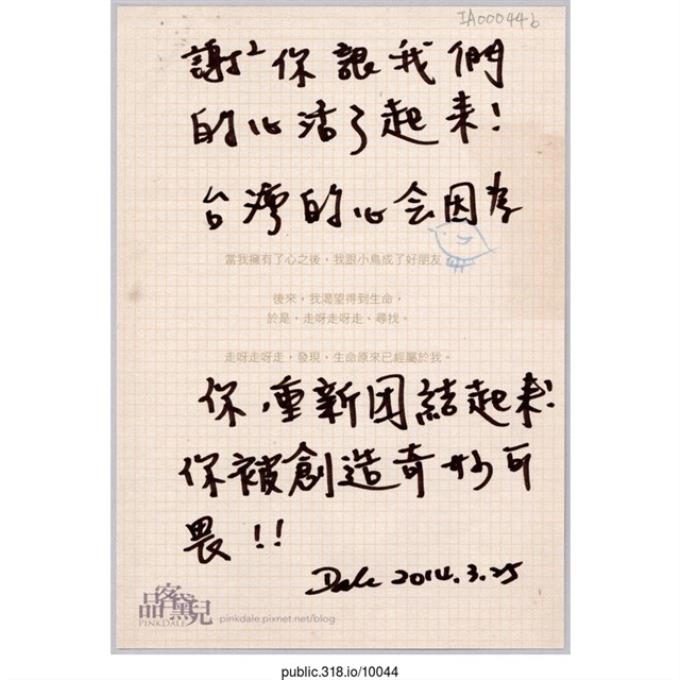 IA000446
謝²你讓我們
的心活了起来!
台湾的心会因為
當我擁有了心之後，我跟小鳥成了好朋友
後來，我渴望得到生命，
於是，走呀走呀走、尋找。
走呀走呀走，發現，生命原來已經屬於我。
你，重新团結起来!
你被創造奇妙可
畏!!
Dale 2014.3.25
品客黛兒
PINKDALE
pinkdale.pixnet.net/blog
public.318.io/10044